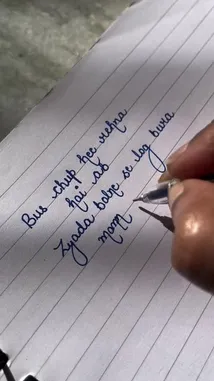 Bus chup hee rehna
hai ab
Zyada bolne se log bura
mann